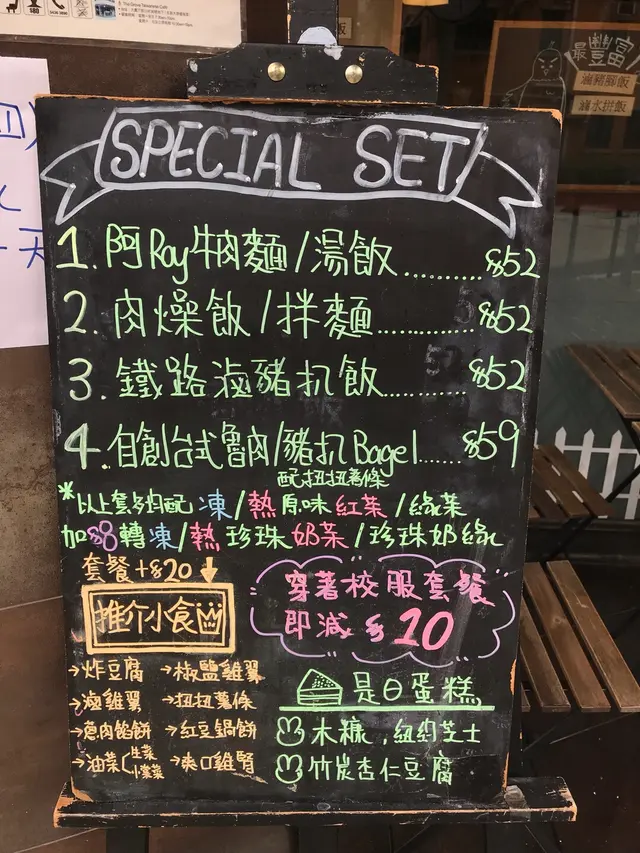 SPECIAL SET
1. 阿Roy牛肉麵/湯飯.........$52
2. 肉燥飯/拌麵..........$52
3. 鐵路滷豬扒飯..........$52
4. 自創台式魯肉/豬扒Bagel......$59
配扭扭薯條
*以上套餐均配 凍/熱原味紅茶/綠茶
加$8轉凍/熱珍珠奶茶/珍珠奶綠
套餐+$20 ↓
推介小食
→炸豆腐 →椒鹽雞翼
→滷雞翼 →扭扭薯條
→魯肉餡餅 →紅豆鍋餅
→油菜(生菜 →爽口雞腎
穿著校服套餐
即減$10
是日蛋糕
木糠,紐約芝士
竹炭杏仁豆腐
最豐富!
滷豬腳飯
滷水拼飯